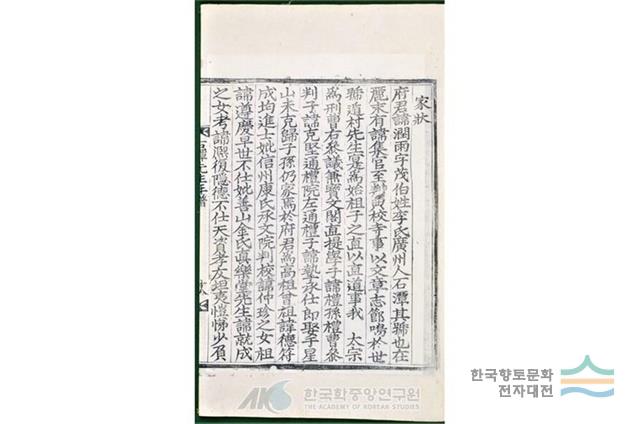 家狀
府君諱潤雨字茂伯姓李氏廣州人石潭其號也在
麗末有諱集官至判典校寺事以文章志節鳴於世
號遁村先生寔爲始祖子之直以直道事我 太宗
爲刑曹右參議兼寶文閣直提學子諱禮孫禮曹參
判子諱克堅通禮院左通禮子諱摯承仕郞娶于星
山未克歸子孫仍家焉於府君爲高祖曾祖諱德符
成均進士妣信州康氏承文院判校諱仲珍之女祖
諱遵慶早世不仕妣善山金氏眞樂堂先生諱就成
之女考諱煕復隱德不仕天資孝友坦夷愷悌少孤
石潭先生年譜
한국학중앙연구원
THE ACADEMY OF KOREAN STUDIES
한국향토문화
전자대전